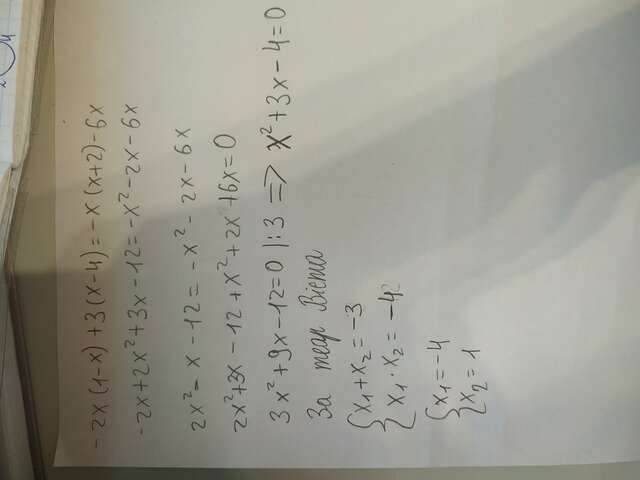 -2x(1-x)+3(x-4)=-x(x+2)-6x
-2x+2x²+3x-12=-x²-2x-6x
2x²-x-12=-x²-2x-6x
2x²+3x-12+x²+2x+6x=0
3x²+9x-12=0|:3 => x²+3x-4=0
За теор Вієта
{x₁+x₂=-3
x₁·x₂=-4
{x₁=-4
x₂=1